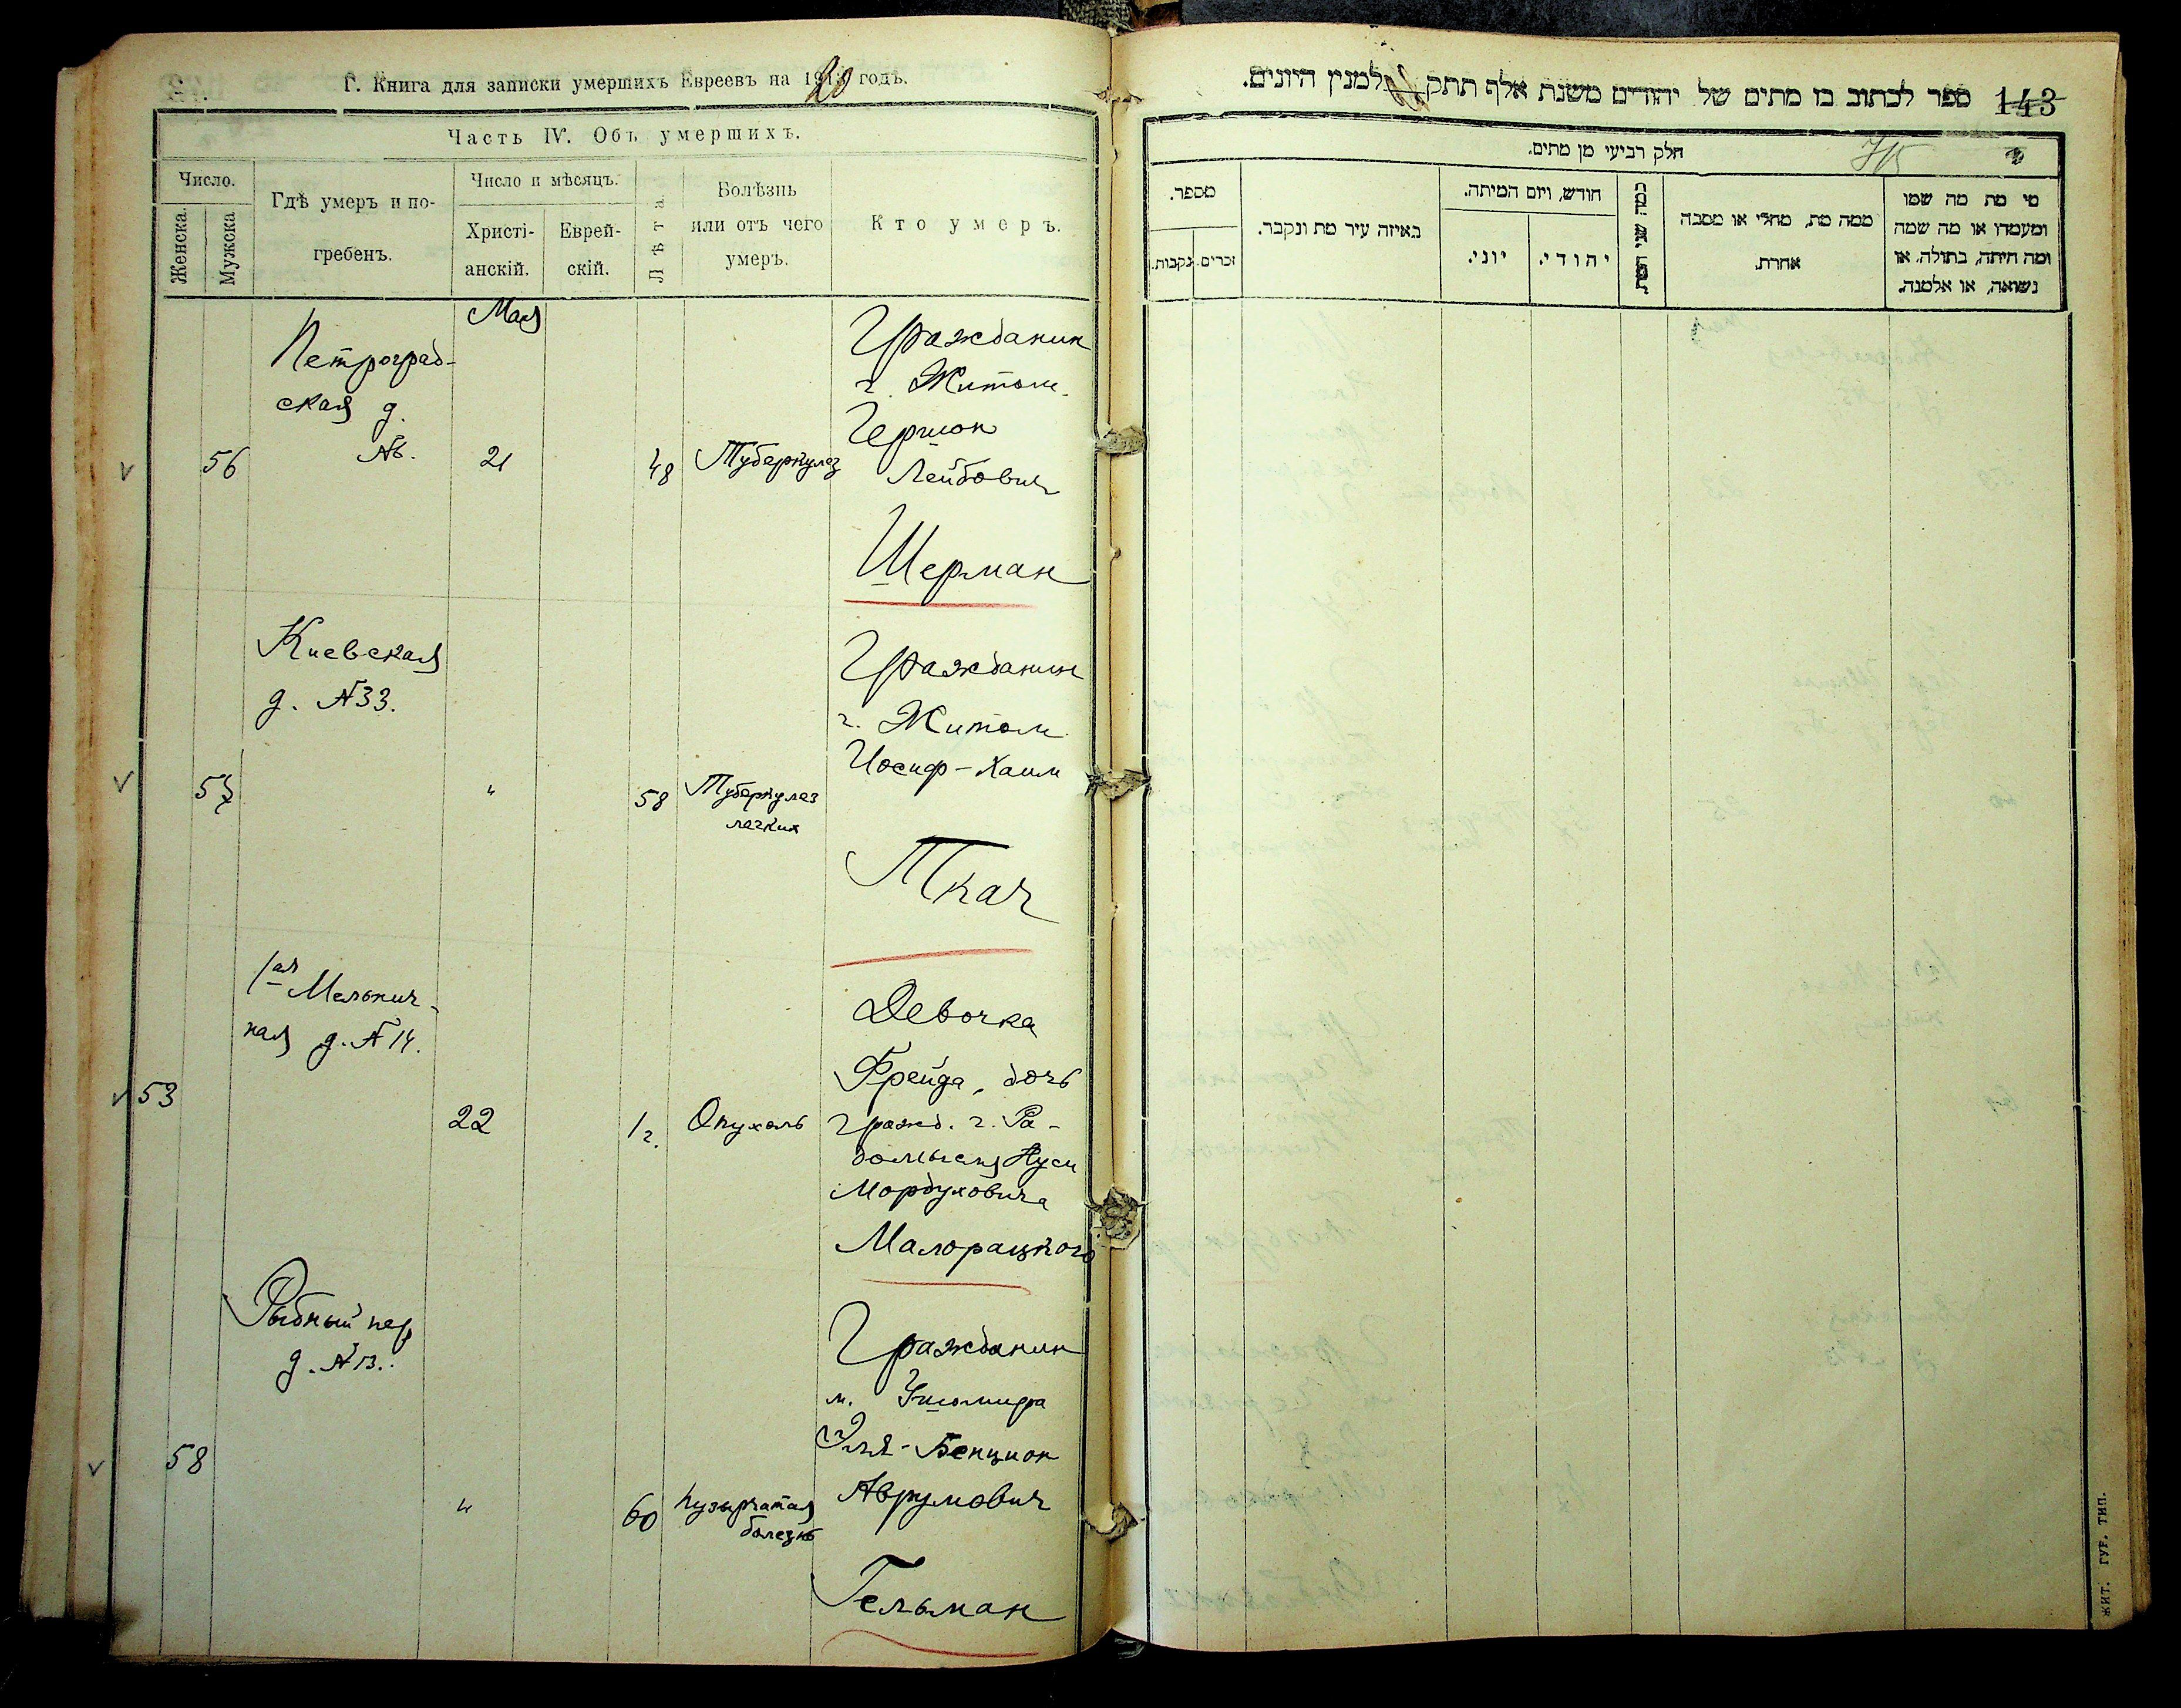 Г. Книга для записки умершихъ Евреевъ на 1920 годъ.
Часть IV. Объ умершихъ.
Число.
Женска.
Мужска
Гдѣ умеръ и по-
гребенъ.
Число и мѣсяцъ.
Христі-
анскій.
Еврей-
скій.
Лѣта.
Болѣзнь
или отъ чего
умеръ.
Кто умеръ.
Мая
Петроград-
ская д.
56
21
48
Туберкулез
Гражданин
г. Житом.
Гершон
Лейбович
Шерман
Киевская
д. №33.
57
"
58
Туберкулез
легких
Гражданин
г. Житом
Иосиф-Хаим
Ткач
1ая Мельнич-
ная д. №14.
53
22
1 г.
Опухоль
Девочка
Фрейда, дочь
гражд. г. Ра-
домысля Нуси
Мордуховича
Малорацкого
Рыбный пер
д. №13.
58
"
60
пузырчатая
болезнь
Гражданин
м. Ушомира
Эля-Бенцион
Аврумович
Гельман
ספר לכתוב בו מתים של יהודים משנת אלף תתק למנין היונים.
143
חלק רביעי מן מתים.
715
מספר.
זכרים.
נקבות.
באיזה עיר מת ונקבר.
חודש, ויום המיתה.
יוני.
יהודי.
כמה שני המת
ממה מת, מחלי או מסבה
אחרת.
מי מת מה שמו
ומעמדו או מה שמה
ומה היתה, בתולה, או
נשואה, או אלמנה.
ЖИТ. ГУБ. ТИП.